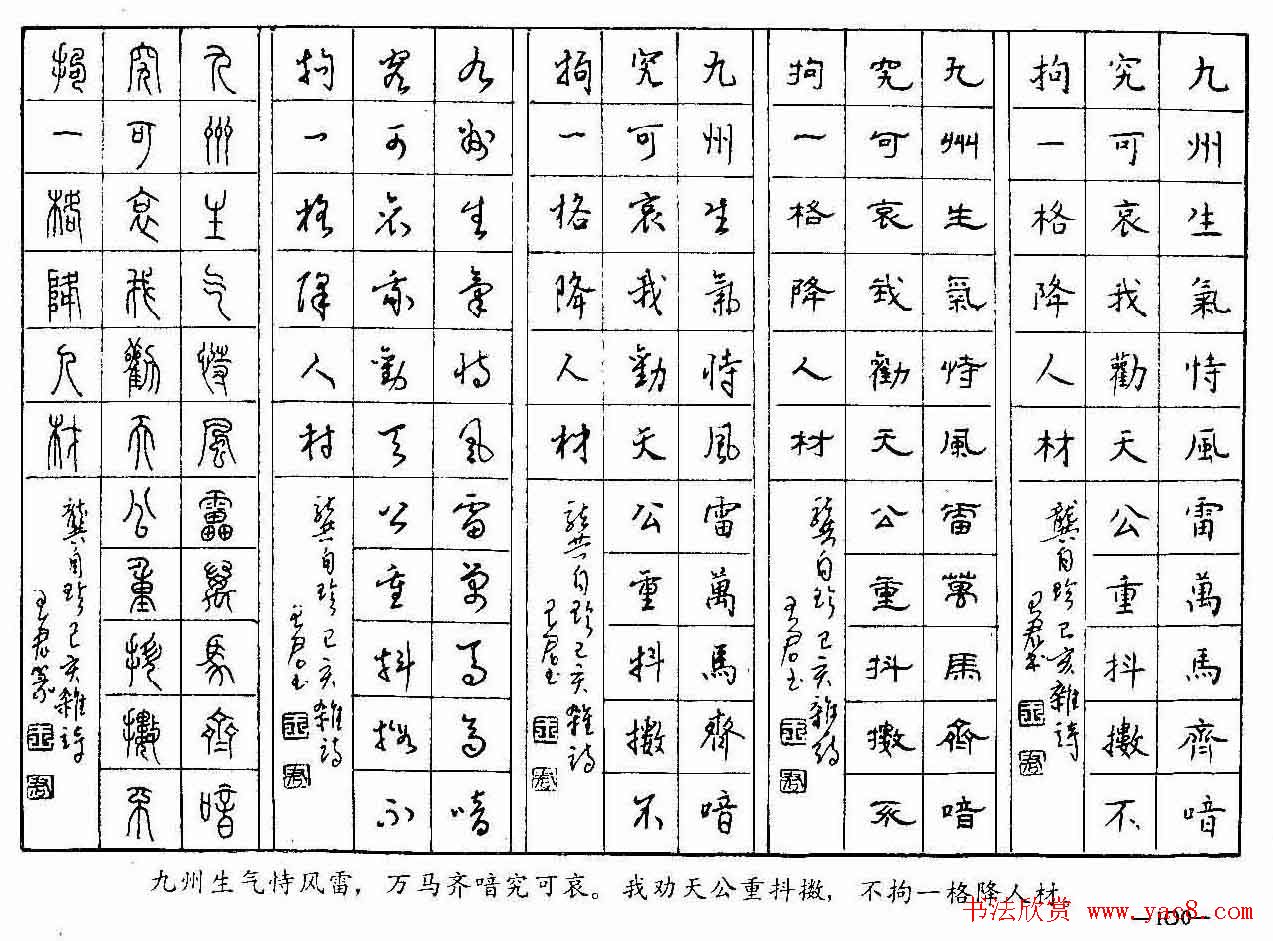 九州生氣恃風雷萬馬齊喑
究可哀我勸天公重抖擻不
拘一格降人材
龔自珍己亥雜詩
王君書
九州生氣恃風雷萬馬齊喑
究可哀我勸天公重抖擻不
拘一格降人材
龔自珍己亥雜詩
王君書
九州生氣恃風雷萬馬齊喑
究可哀我勸天公重抖擻不
拘一格降人材
龔自珍己亥雜詩
王君書
九州生氣恃風雷萬馬齊喑
究可哀我勸天公重抖擻不
拘一格降人材
龔自珍己亥雜詩
王君書
九州生气恃風雷萬馬齊喑
究可哀我勸天公重抖擻不
拘一格降人材
龔自珍己亥雜詩
王君篆
九州生气恃风雷，万马齐喑究可哀。我劝天公重抖擞，不拘一格降人材。
书法欣赏 www.yac8.com
—100—